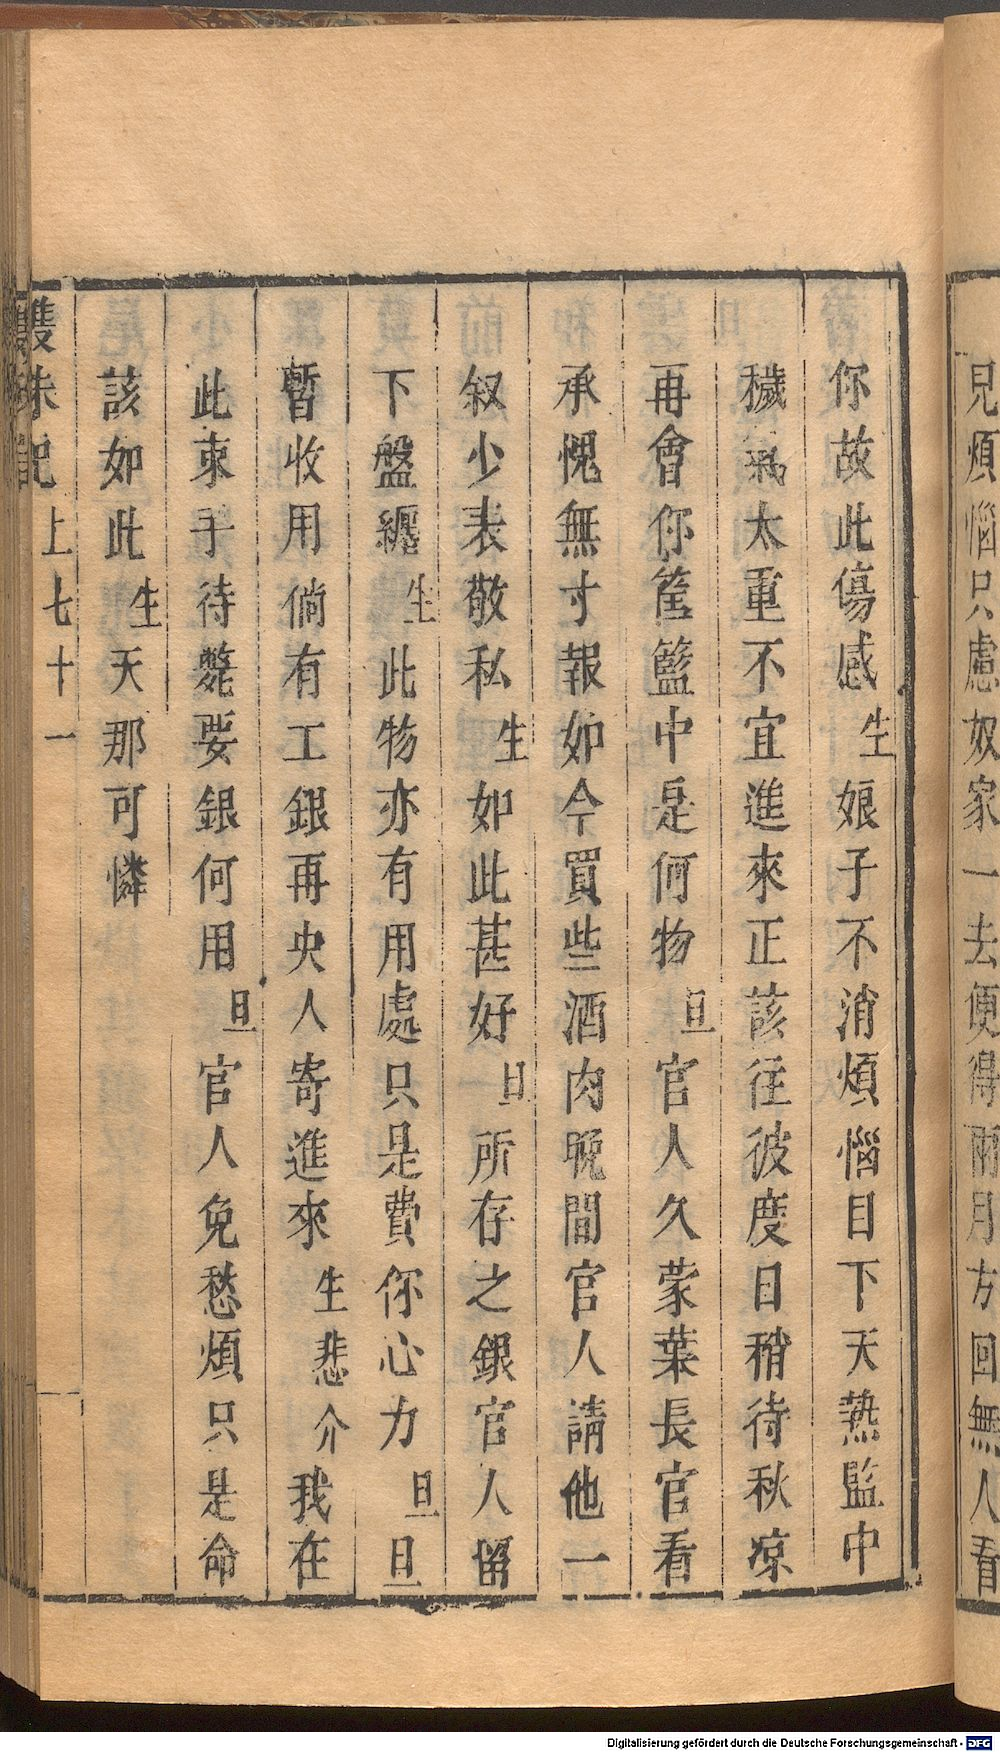 見煩惱只慮奴家一去便得兩月方回無人看
你故此傷感生娘子不消煩惱目下天熱監中
穢氣太重不宜進來正該往彼度日稍待秋凉
再會你筐籃中是何物旦官人久蒙葉長官看
承愧無寸報如今買些酒肉晚間官人請他一
叙少表敬私生如此甚好旦所存之銀官人留
下盤纏生此物亦有用處只是費你心力旦旦
暫收用倘有工銀再央人寄進來生悲介我在
此束手待斃要銀何用旦官人免愁煩只是命
該如此生天那可憐
雙珠記 上七十一
Digitalisierung gefördert durch die Deutsche Forschungsgemeinschaft - DFG